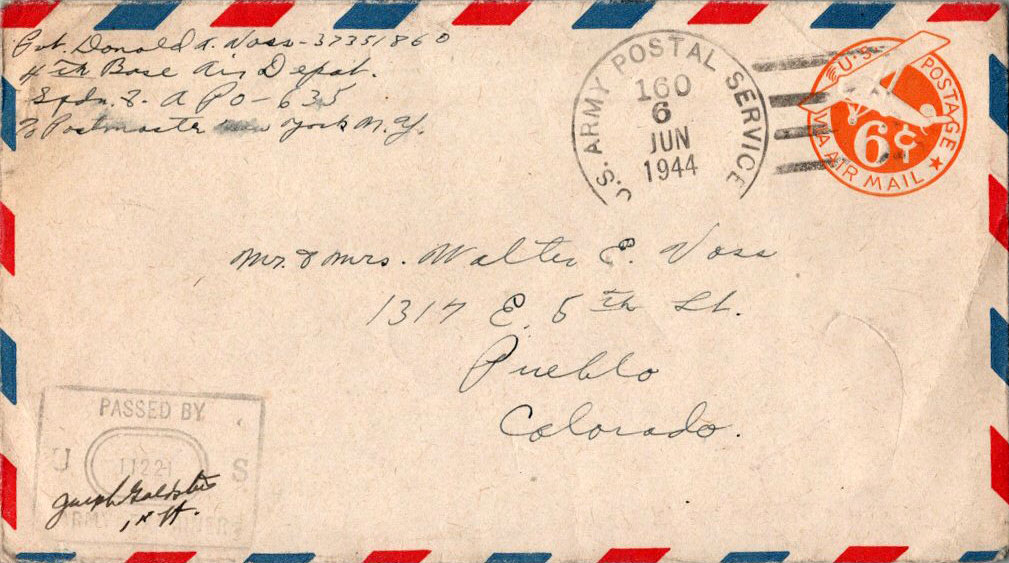 Pvt. Donald R. Voss - 37351860
4th Base Air Depot.
Sqdn. 8. A P O - 635
℅ Postmaster New York N. Y.
U.S. ARMY POSTAL SERVICE
160
6
JUN
1944
U.S. POSTAGE
6¢
VIA AIR MAIL
Mr. & Mrs. Walter E. Voss
1317 E. 5th St.
Pueblo
Colorado.
PASSED BY
U 11221 S
ARMY EXAMINER
Joseph Goldstein
1st Lt.